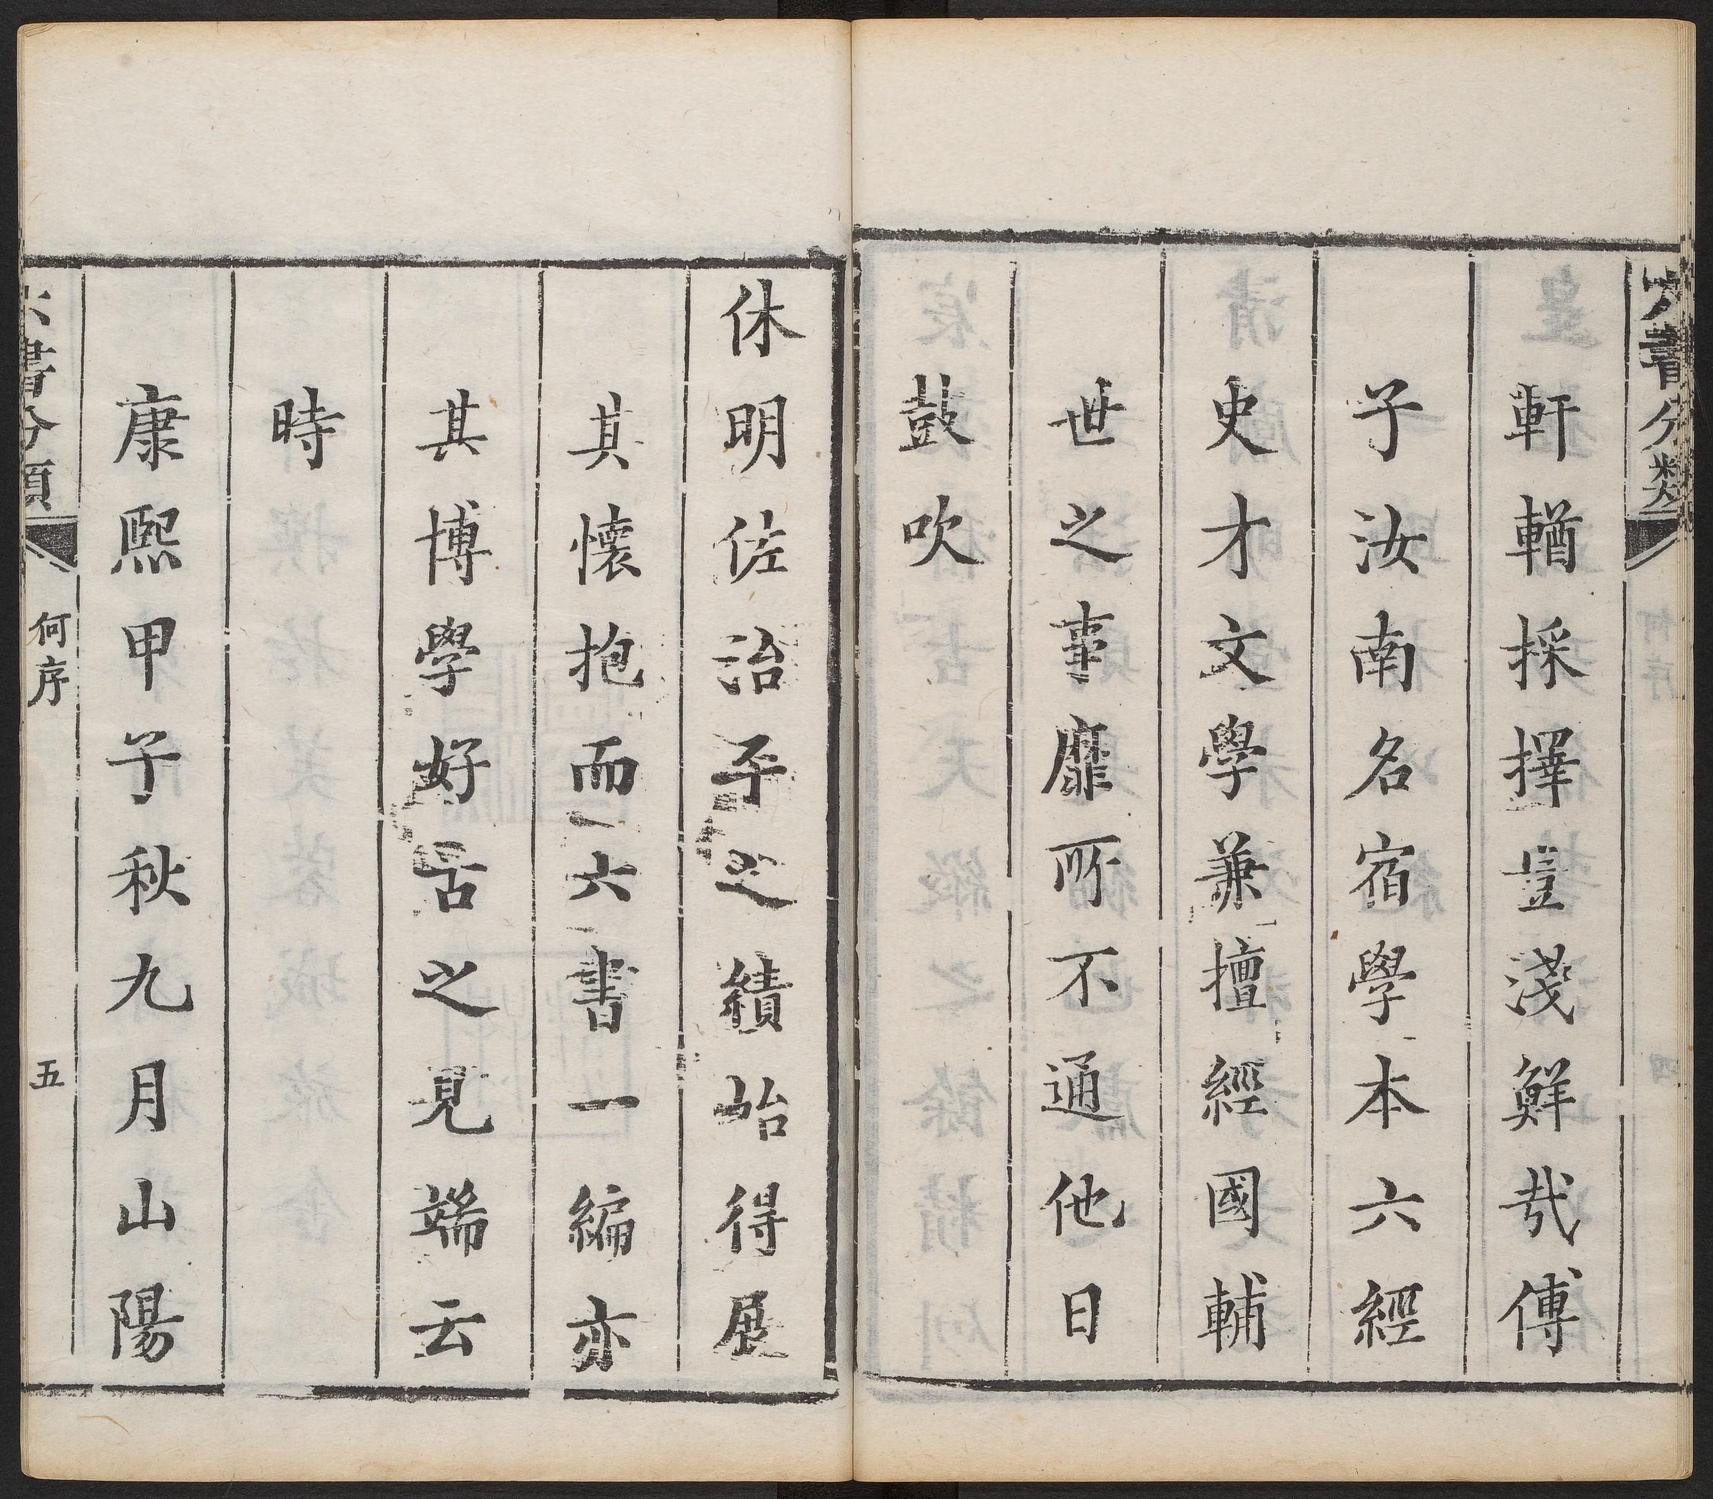 六書分類
軒輶採擇豈淺鮮㢤傅
子汝南名宿學本六經
史才文學兼擅經國輔
世之事靡所不通他日
鼓吹
休明佐治平之績始得展
其懷抱而六書一編亦
其博學好古之見端云
時
康熙甲子秋九月山陽
六書分類
何序
五